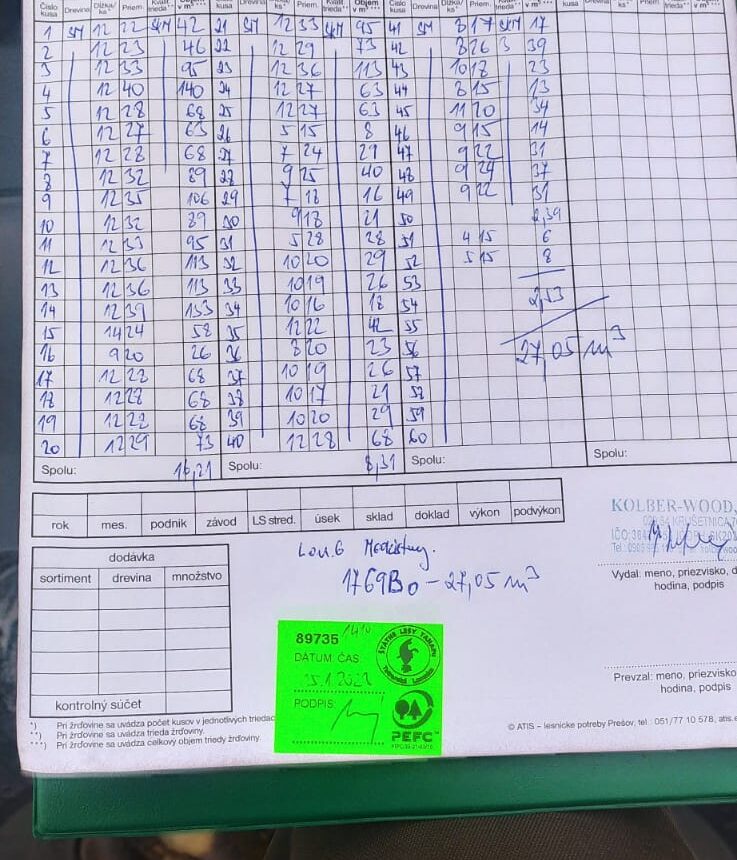 Číslo kusa Drevina Dĺžka/ks* Priem. Kvalit. trieda** Objem v m³ *** Číslo kusa Drevina Dĺžka/ks* Priem. Objem v m³ ***
1 SM 12 22 SKM 42 21 SM 12 33 SKM 95 41 SM 8 17 SKM 17
2 12 23 46 22 12 29 73 42 8 26 3 39
3 12 33 95 23 12 36 113 43 10 18 23
4 12 40 140 24 12 27 63 44 8 15 13
5 12 28 68 25 12 27 63 45 11 20 34
6 12 27 63 26 5 15 8 46 9 15 14
7 12 28 68 27 7 24 29 47 9 22 31
8 12 32 89 28 9 25 40 48 9 24 37
9 12 35 106 29 7 18 16 49 9 22 31
10 12 32 89 30 9 18 21 50 2,39
11 12 33 95 31 5 28 28 51 4 15 6
12 12 36 113 32 10 20 29 52 5 15 8
13 12 36 113 33 10 19 26 53
14 12 39 133 34 10 16 18 54 2,53
15 14 24 58 35 12 22 42 55
16 9 20 26 36 8 20 23 56 27,05 m³
17 12 28 68 37 10 19 26 57
18 12 28 68 38 10 17 21 58
19 12 28 68 39 10 20 29 59
20 12 29 73 40 12 28 68 60
Spolu: 16,21 Spolu: 8,31 Spolu: Spolu:
rok mes. podnik závod LS stred. úsek sklad doklad výkon podvýkon
KOLBER-WOOD,
Vydal: meno, priezvisko,
hodina, podpis
dodávka
sortiment drevina množstvo
kontrolný súčet
1769Bo - 27,05 m³
89735
DÁTUM, ČAS:
PODPIS:
ŠTÁTNE LESY TANAPU
PEFC
Prevzal: meno, priezvisko
hodina, podpis
*) Pri žrďovine sa uvádza počet kusov v jednotlivých triedac
**) Pri žrďovine sa uvádza trieda žrďoviny.
***) Pri žrďovine sa uvádza celkový objem triedy žrďoviny.
© ATIS – lesnícke potreby Prešov, tel.: 051/77 10 578, atis.e